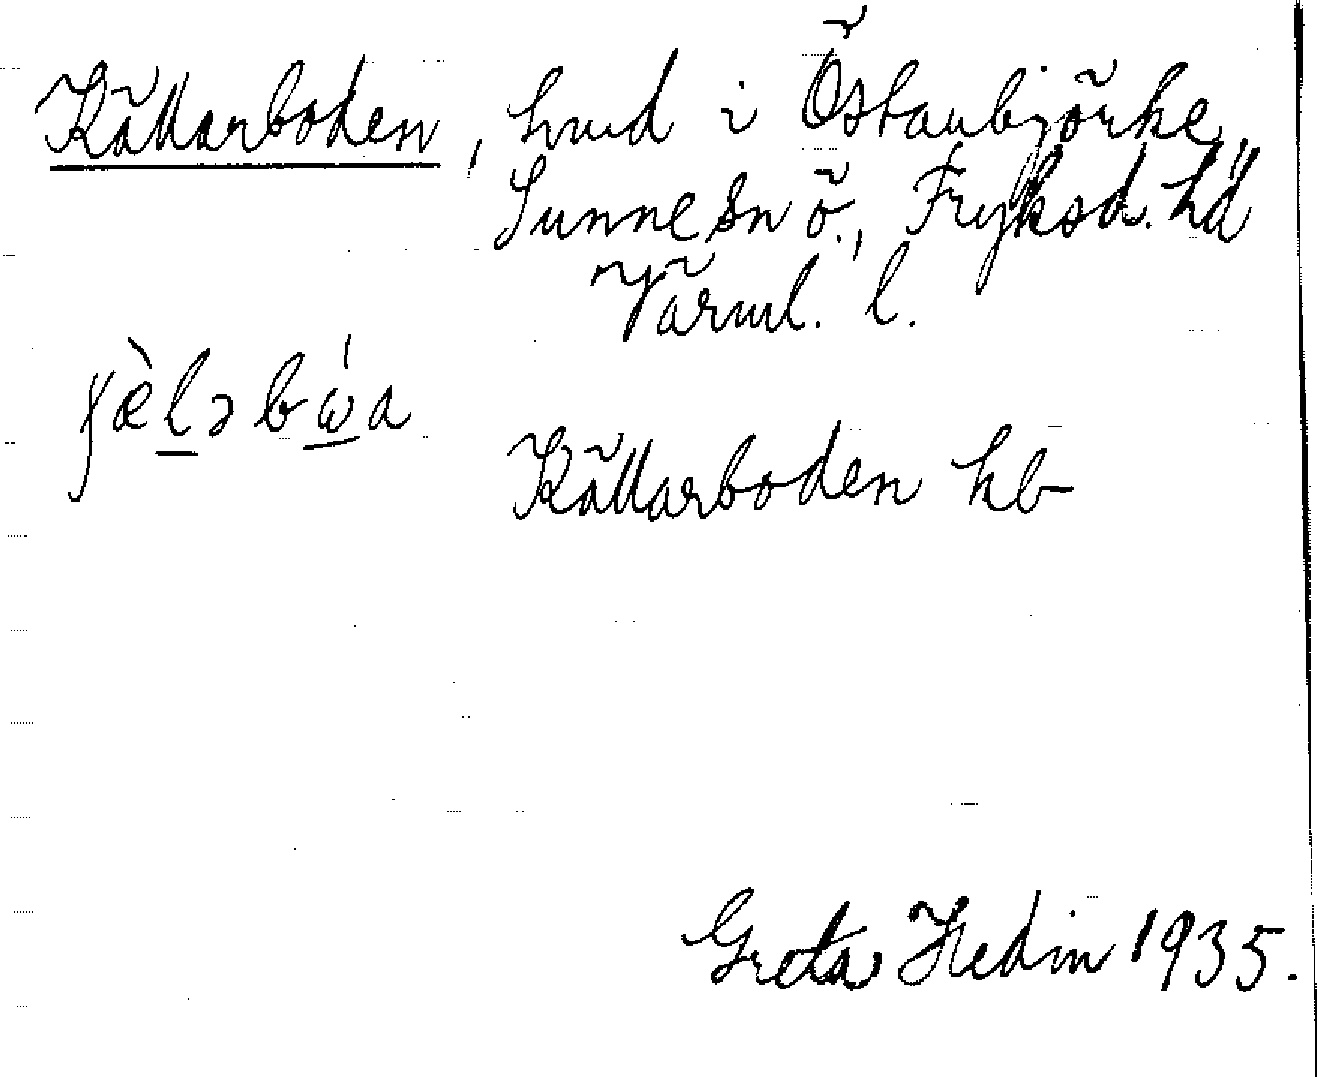 Källarboden, hmd i Östanbjörke,
Sunne sn ö., Fryksd. hd
Värml. l.
ɣæ̀lə bώa
Källarboden hb
Greta Hedin 1935.